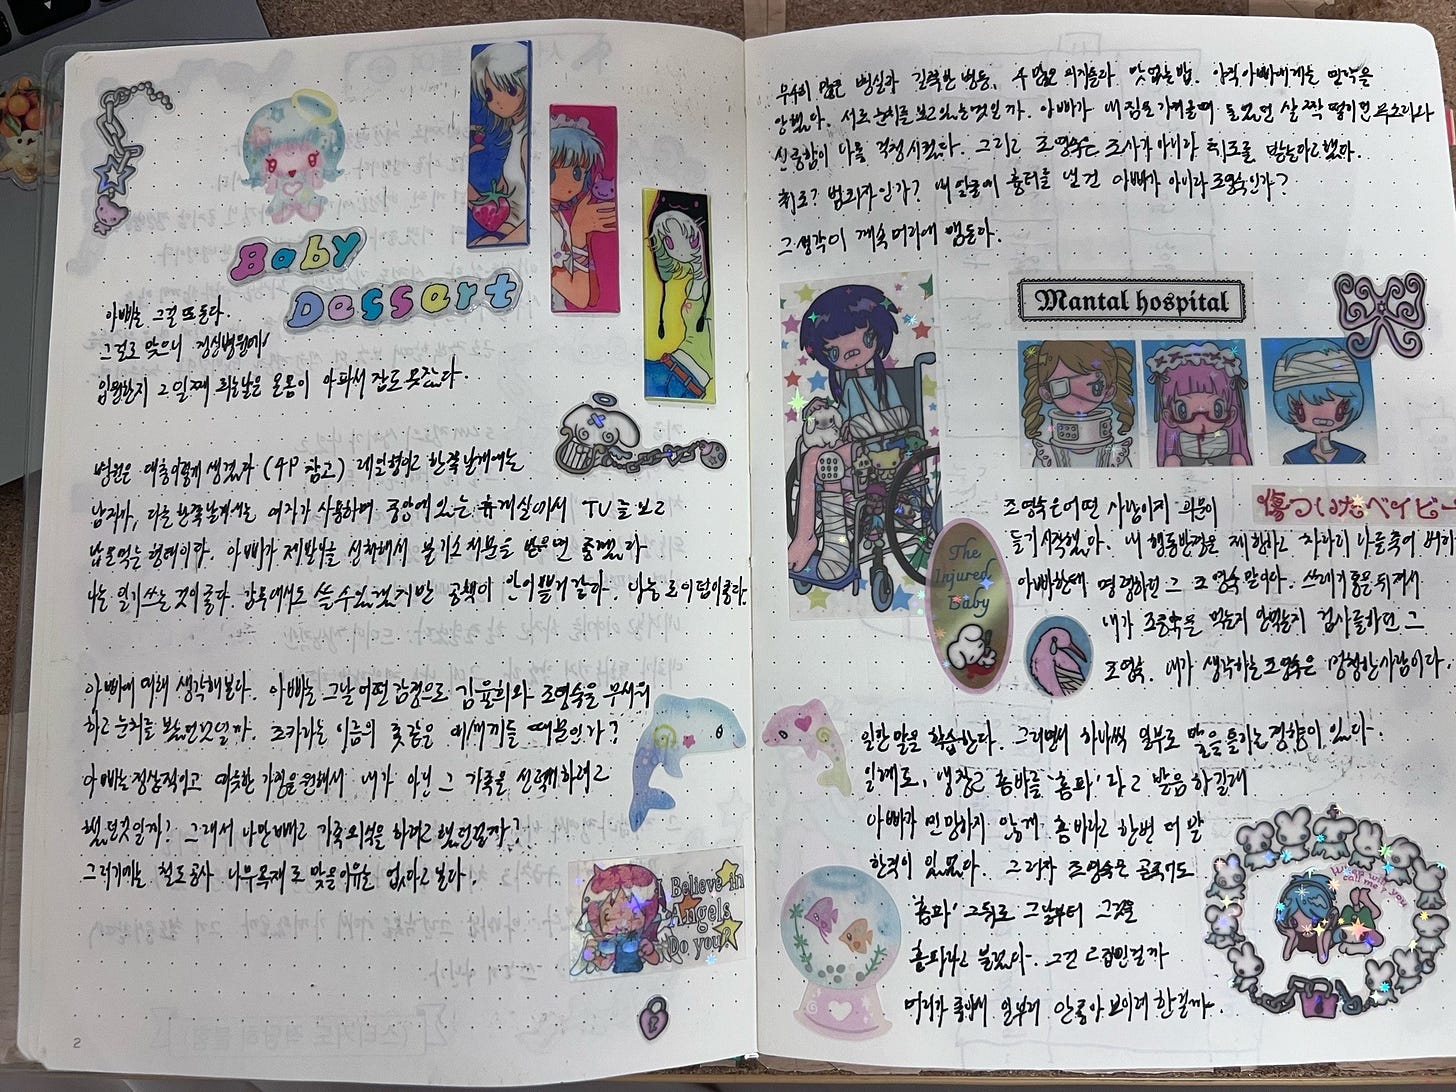 Baby
Dessert
아빠는 그걸 또든다.
그걸로 맞으니 정신병원에
입원한지 2일째 되는날은 온몸이 아파서 잠도 못잤다.
병원은 대충이렇게 생겼다 (4P 참고) 레일형이고 한쪽 날개에는
남자가, 다른 한쪽날개에는 여자가 사용하며 중앙에 있는 휴게실에서 TV를 보고
밥을먹는 형태이다. 아빠가 제발 를 신청해서 분기소 처분을 받으면 좋겠다
나는 일기쓰는 것이 좋다. 감옥에서도 쓸수있겠지만 공책이 안이쁠거 같아. 나는 로이텀이좋다.
아빠에 대해 생각해본다. 아빠는 그날 어떤 감정으로 김윤희와 조영숙을 무서워
하고 눈치를 봤던것일까. 조카라는 이름의 좆같은 애새끼들 때문인가?
아빠는 정상적이고 따뜻한 가정을 원해서 내가 아닌 그 가족을 선택하려고
했던것일까? 그래서 나만 빼고 가족외식을 하려고 했던걸까?
그러기에는 철도공사 나무목재로 맞을이유는 없다고 본다.
I Believe in
Angels
Do you?
2
무수히 많은 병실과 길쭉한 병동, 수많은 의자들과 맛없는밥. 아직 아빠에게는 연락을
안했다. 서로 눈치를 보고있는것일까. 아빠가 내 짐을 가져올때 들었던 살짝 떨리던 목소리와
신중함이 나를 걱정시켰다. 그리고 조영숙은 조사가 아니라 취조를 받는다고했다.
취조? 범죄자인가? 내 얼굴에 흉터를 낸건 아빠가 아니라 조영숙인가?
그 생각이 계속 머리에 맴돈다.
Mantal hospital
傷ついたベイビー
The
Injured
Baby
조영숙은 어떤 사람이지 의문이
들기시작했다. 내 행동반경을 제한하고 차라리 나를 죽여 버려
아빠한테 명령하던 그 조영숙 말이다. 쓰레기통을 뒤져서
내가 조증약을 먹는지 안먹는지 검사를하던 그
조영숙. 내가 생각하는 조영숙은 멍청한사람이다.
일한 말을 학습한다. 그러면서 하나씩 일부로 말을 틀리는 경향이 있다.
일례로, 냉장고 홈바를 '홈파' 라고 발음 하길래
아빠가 민망하지 않게 홈바라고 한번 더 말
한적이 있었다. 그러자 조영숙은
'홈파' 그뒤로 그날부터 그것을
홈파라고 불렀다. 그건 컨셉인걸까
머리가 좋아서 일부러 안좋아 보이려 한걸까.
When will you
call me?